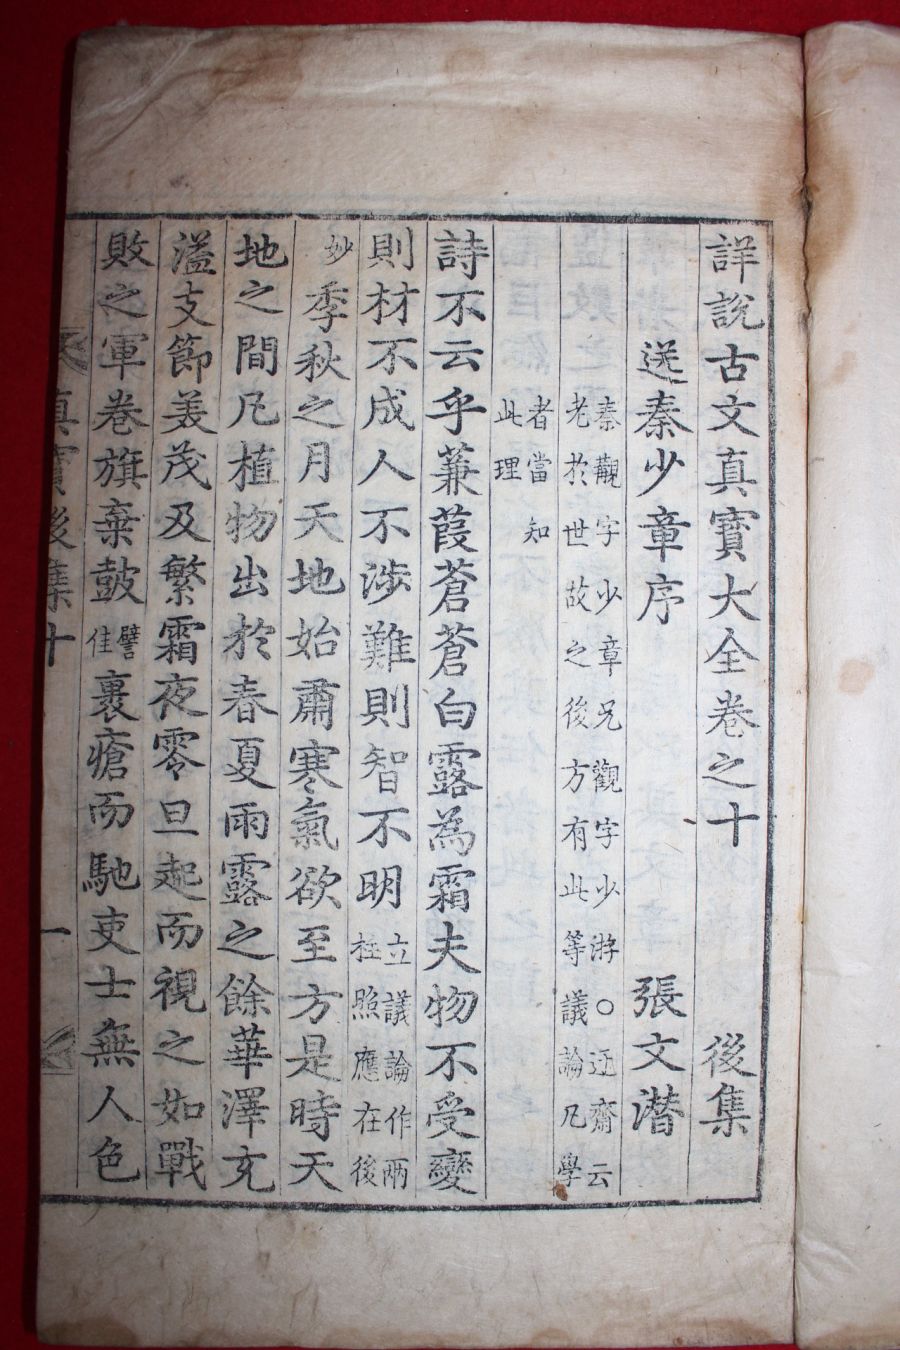 詳說古文真寶大全卷之十 後集
送秦少章序 張文潛
秦覯字少章兄觀字少游○迂齋云
老於世故之後方有此等議論凡學
者當知
此理
詩不云乎蒹葭蒼蒼白露為霜夫物不受變
則材不成人不涉難則智不明立議論作兩
柱照應在後
妙季秋之月天地始肅寒氣欲至方是時天
地之間凡植物出於春夏雨露之餘華澤充
溢支節美茂及繁霜夜零旦起而視之如戰
敗之軍卷旗棄鼓譬
佳裹瘡而馳吏士無人色
真寶後集十
一